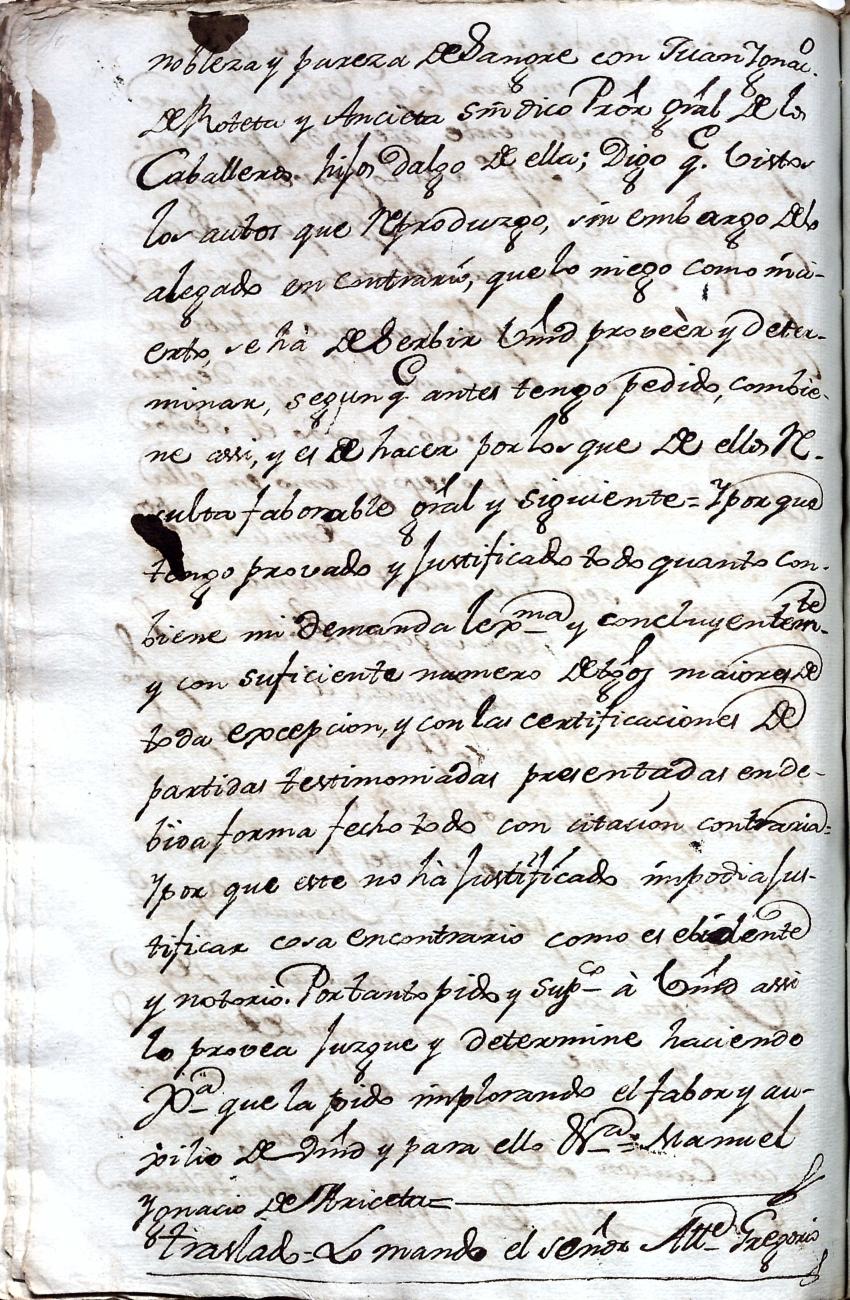 nobleza y pureza de Sangre con Juan Ygnac.º
de Roteta y Ancieta sindico Pror gral de los
Caballeros hijos dalgo de ella; Digo q.e Vistos
los autos que Reproduzgo, sin embargo delo
alegado en contrario, que lo niego como inci-
erto, se hà de Serbir Vmd proveèr y deter-
minar, segun q.e antes tengo pedido, combie-
ne assi, y es de hacer por los que de ellos Re-
sulta faborable gral y siguiente = Y por que
tengo provado y Justificado todo quanto con-
biene mi demanda lexma y concluyentemte
y con suficiente numero de tgos maiores de
toda excepcion, y con las certificaciones de
partidas testimoniadas presentadas en de-
bida forma fecho todo con citacion contraria =
Y por que este no hà Justificado ni podia Jus-
tificar cosa encontrario como es ebidente
y notorio. Portanto pido y sup.co à Vmd assi
lo provea Juzgue y determine haciendo
Jxa que la pido implorando el fabor y au-
xilio de Vmd y para ello &ra = Manuel
Ygnacio de Ariceta =
traslado = Lo mando el señor Alte Gregorio